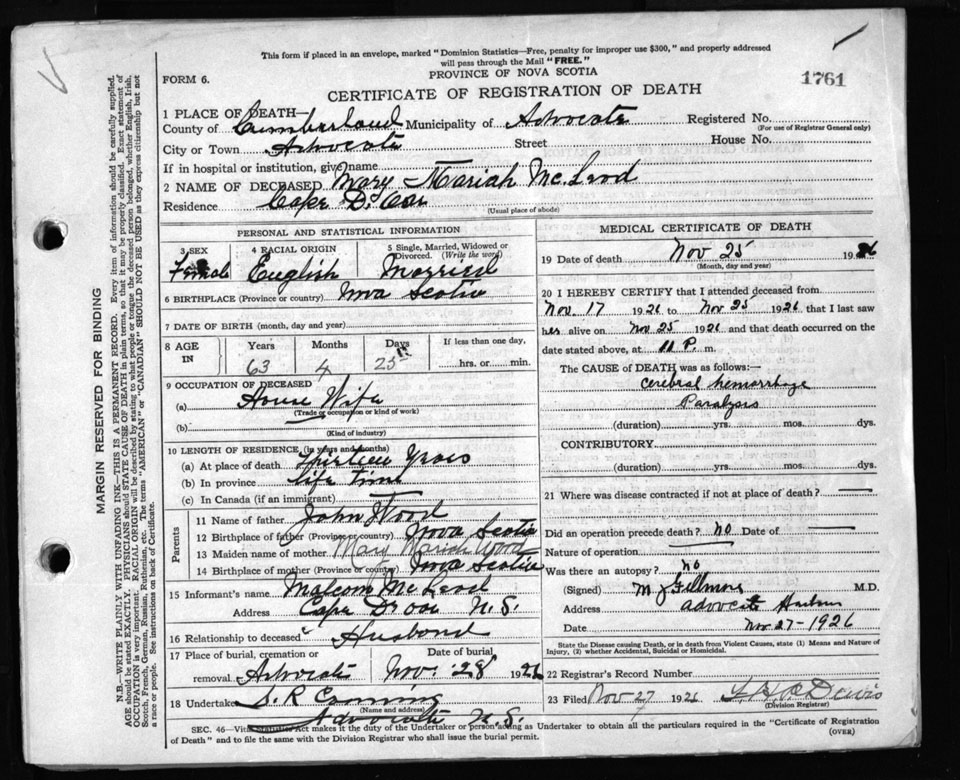 This form if placed in an envelope, marked "Dominion Statistics—Free, penalty for improper use $300," and properly addressed
will pass through the Mail "FREE."
FORM 6.
PROVINCE OF NOVA SCOTIA
1761
CERTIFICATE OF REGISTRATION OF DEATH
1 PLACE OF DEATH—
County of Cumberland Municipality of Advocate Registered No.
(For use of Registrar General only)
City or Town Advocate Street House No.
If in hospital or institution, give name
2 NAME OF DECEASED Mary Mariah McLeod
Residence Cape D'Or
(Usual place of abode)
PERSONAL AND STATISTICAL INFORMATION
3 SEX 4 RACIAL ORIGIN 5 Single, Married, Widowed or Divorced. (Write the word)
Female English Married
6 BIRTHPLACE (Province or country) Nova Scotia
7 DATE OF BIRTH (month, day and year)
8 AGE IN Years Months Days If less than one day,
63 4 25 hrs. or min.
9 OCCUPATION OF DECEASED
(a) House Wife
(Trade or occupation or kind of work)
(b)
(Kind of industry)
10 LENGTH OF RESIDENCE (in years and months)
(a) At place of death thirteen years
(b) In province life time
(c) In Canada (if an immigrant)
Parents
11 Name of father John Wood
12 Birthplace of father (Province or country) Nova Scotia
13 Maiden name of mother Mary Mariah Wood
14 Birthplace of mother (Province or country) Nova Scotia
15 Informant's name Malcom McLeod
Address Cape D'or N.S.
16 Relationship to deceased Husband
17 Place of burial, cremation or removal Date of burial
Advocate Nov. 28 1926
18 Undertaker S. R Canning
(Name and address)
Advocate N.S.
MEDICAL CERTIFICATE OF DEATH
19 Date of death Nov 25 1926
(Month, day and year)
20 I HEREBY CERTIFY that I attended deceased from
Nov. 17 1926 to Nov 25 1926 that I last saw
her alive on Nov 25 1926 and that death occurred on the
date stated above, at 11 P. m.
The CAUSE of DEATH was as follows:—
Cerebral hemorrhage
Paralysis
(duration) yrs. mos. dys.
CONTRIBUTORY
(duration) yrs. mos. dys.
21 Where was disease contracted if not at place of death?
Did an operation precede death? no Date of
Nature of operation
Was there an autopsy? no
(Signed) M J Gillmore M.D.
Address Advocate Harbour
Date Nov 27-1926
State the Disease causing Death, or in death from Violent Causes, state (1) Means and Nature of
Injury, (2) whether Accidental, Suicidal or Homicidal.
22 Registrar's Record Number
23 Filed Nov 27 1926 Davis
(Division Registrar)
SEC. 46—Vital Statistics Act makes it the duty of the Undertaker or person acting as Undertaker to obtain all the particulars required in the "Certificate of Registration
of Death" and to file the same with the Division Registrar who shall issue the burial permit. (OVER)
MARGIN RESERVED FOR BINDING
N.B.—WRITE PLAINLY WITH UNFADING INK—THIS IS A PERMANENT RECORD. Every item of information should be carefully supplied.
AGE should be stated EXACTLY. PHYSICIANS should STATE CAUSE OF DEATH in plain terms, so that it may be properly classified. Exact statement of
OCCUPATION is very important. RACIAL ORIGIN will be described by stating to what people or tongue the deceased person belonged, whether English, Irish,
Scotch, French, German, Russian, Ruthenian, etc. The terms "AMERICAN" or "CANADIAN" SHOULD NOT BE USED as they express citizenship but not
a race or people. See instructions on back of Certificate.